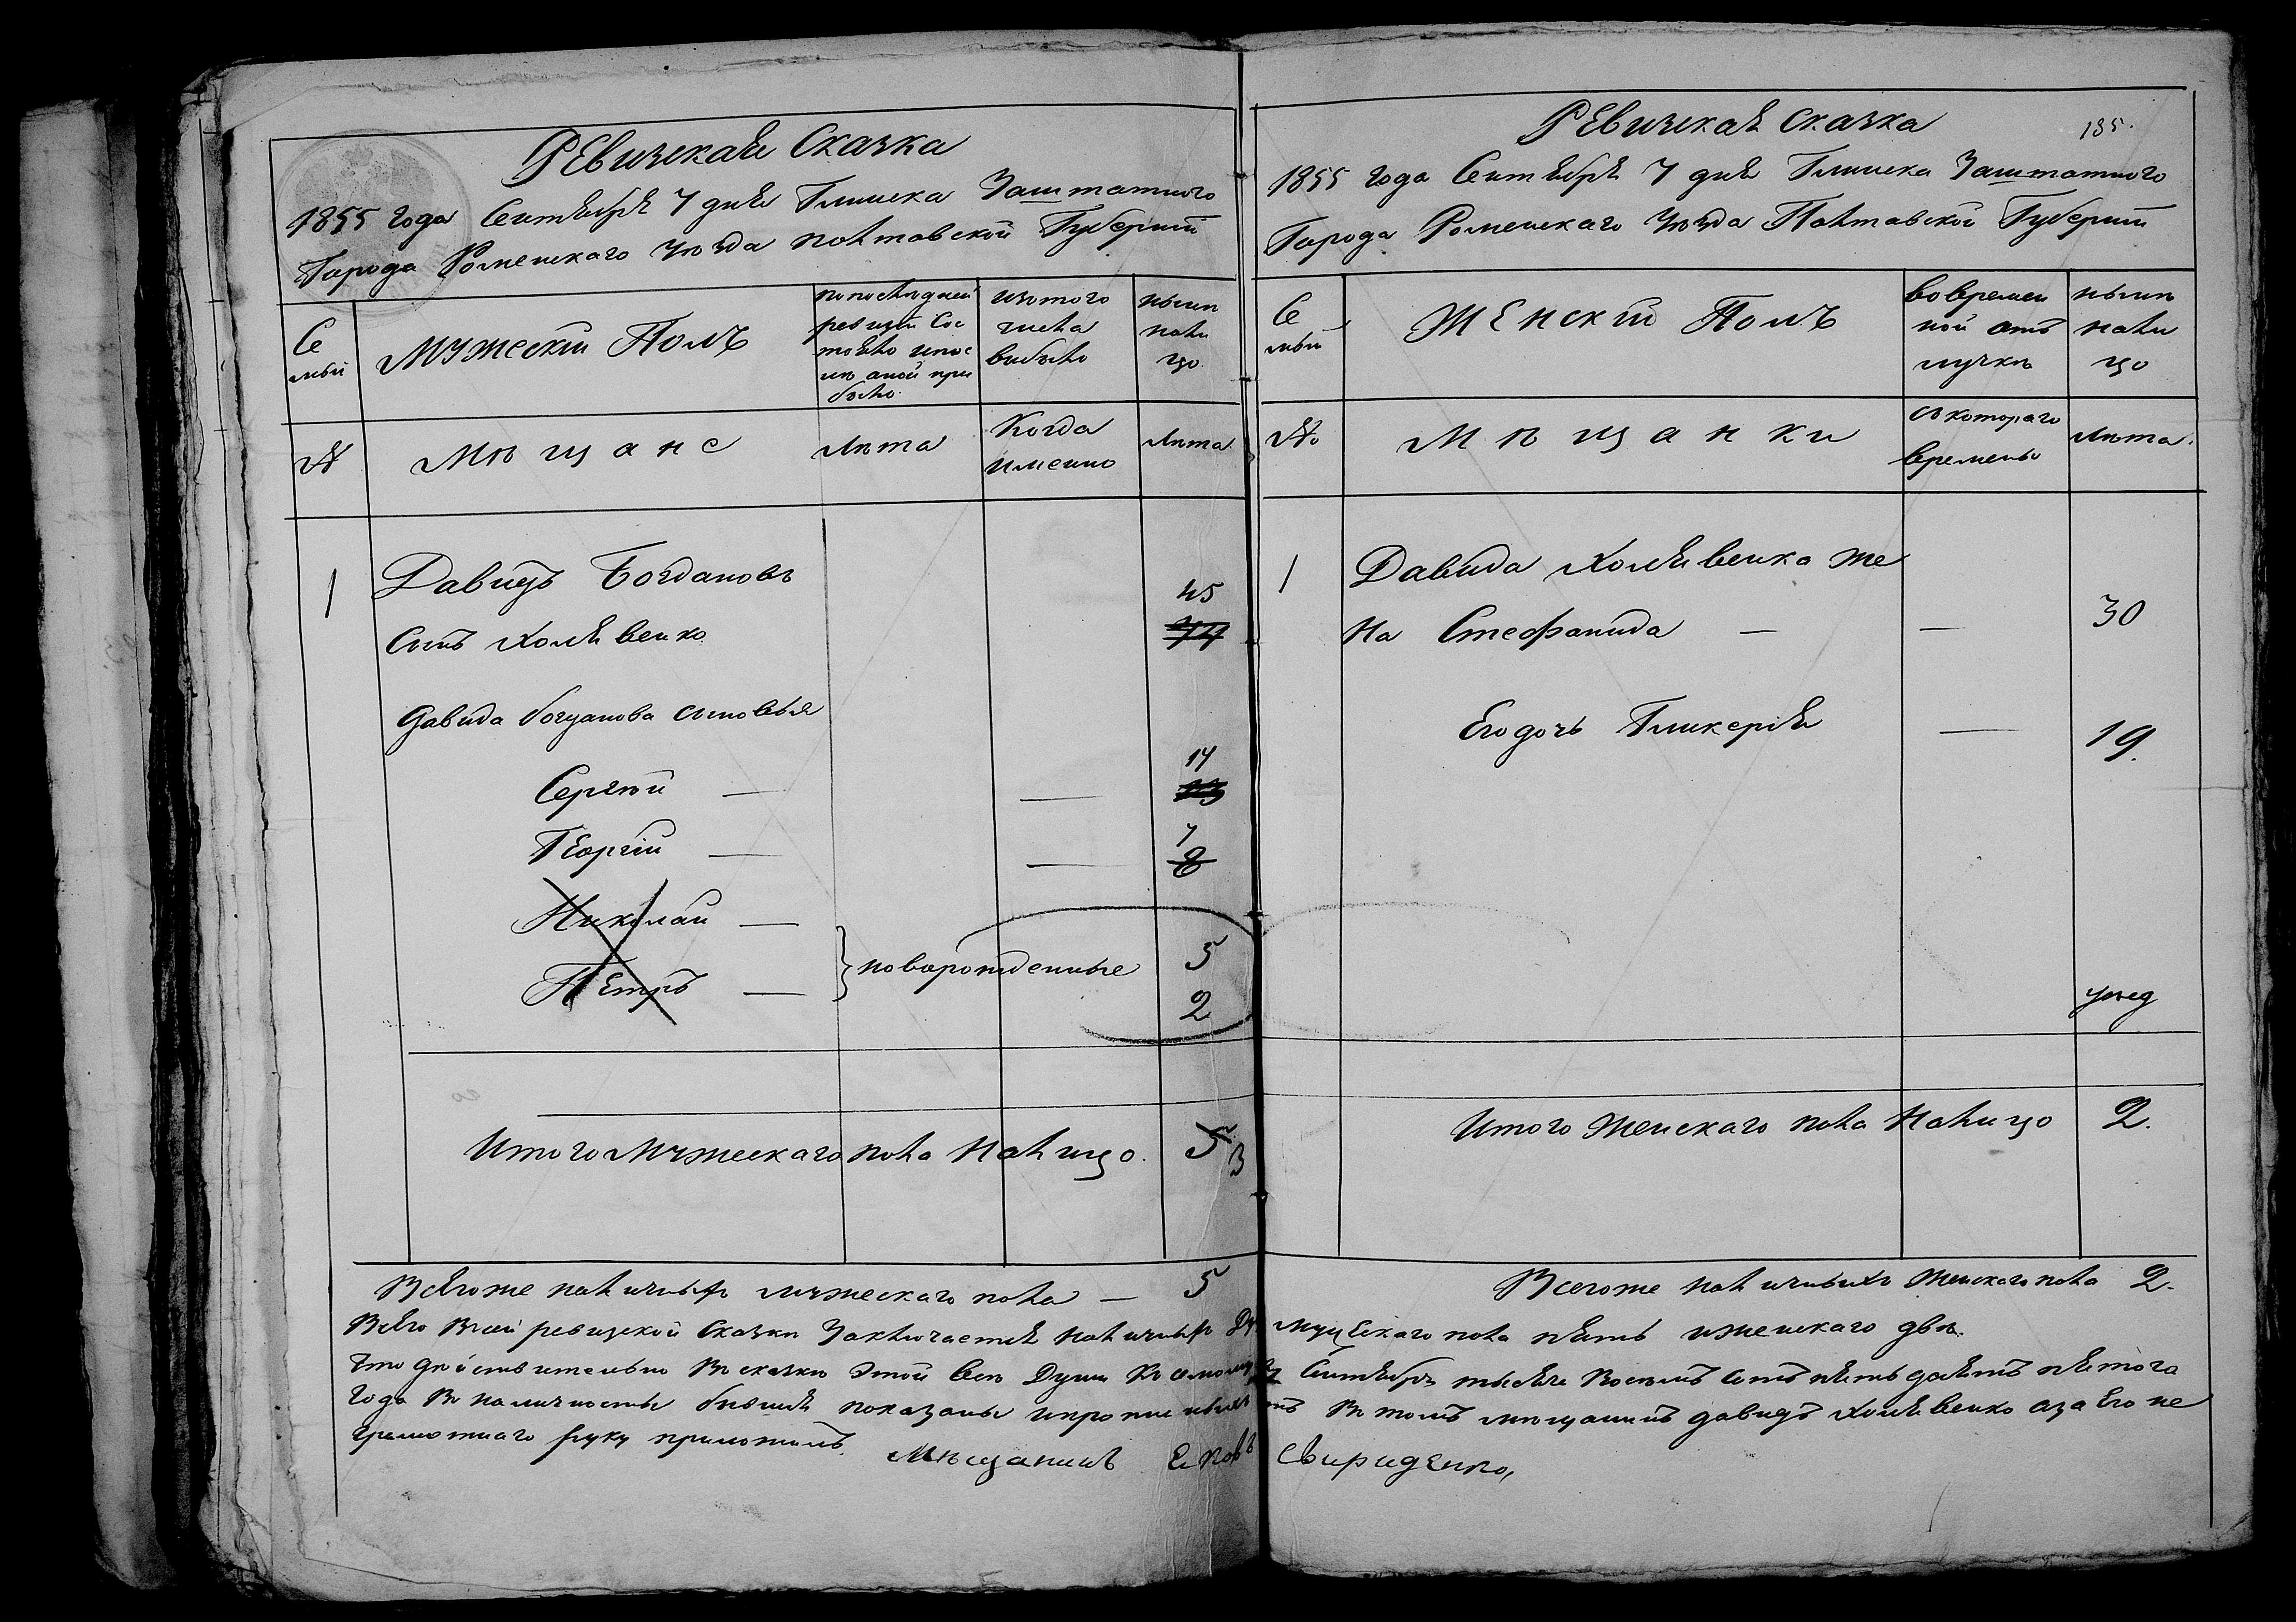 Ревизская Сказка
1855 года Сентября 7 дня Глинска Заштатного
Города Роменскаго уѣзда полтавской Губерніи
Се
мьи
Мужескій Полъ
попоследней
ревизіи Сос
тояло ипос
лѣ оной при
было.
изтого
числа
выбыло
нынѣ
нали
цо
№
Мѣщане
лѣта
Когда
именно
лѣта
1
Давидъ Богдановъ
45
Сынъ Холявенко
44
Давида богданова сыновья
14
Сергѣй —
—
13
7
Георгій —
—
8
Николай —
новорожденные
5
Петръ —
2
Итого Мужескаго пола Налицо.
5
3
Всегоже наличныхъ мужескаго пола — 5
Ревизская Сказка
185.
1855 года Сентября 7 дня Глинска Заштатного
Города Роменскаго Уѣзда Полтавской Губерніи
Се
мьи
Женскій Полъ
вовремен
ной отъ
лучкѣ
нынѣ
нали
цо
№
Мѣщанки
съкотораго
времены
лѣта.
1
Давида Холявенка же
на Стефанида —
—
30
Егодочь Гликерія
—
19.
Итого Женскаго пола Налицо
2.
Всегоже наличныхъ Женскаго пола 2.
Всего Всей ревизской Сказки Заключается наличныхъ Ду мужескаго пола пять иженскаго двѣ.
Что дѣйствительно Въ сказкѣ этой всѣ Души Къ Сентябрь тысяча Восемъ Сотъ пять десятъ пятого
года Въ наличносты бывшія показаны Въ томъ мѣщанинъ давидъ Холявенко аза Его не
грамотнаго руку приложилъ.
Мѣщанинъ Свириденко,